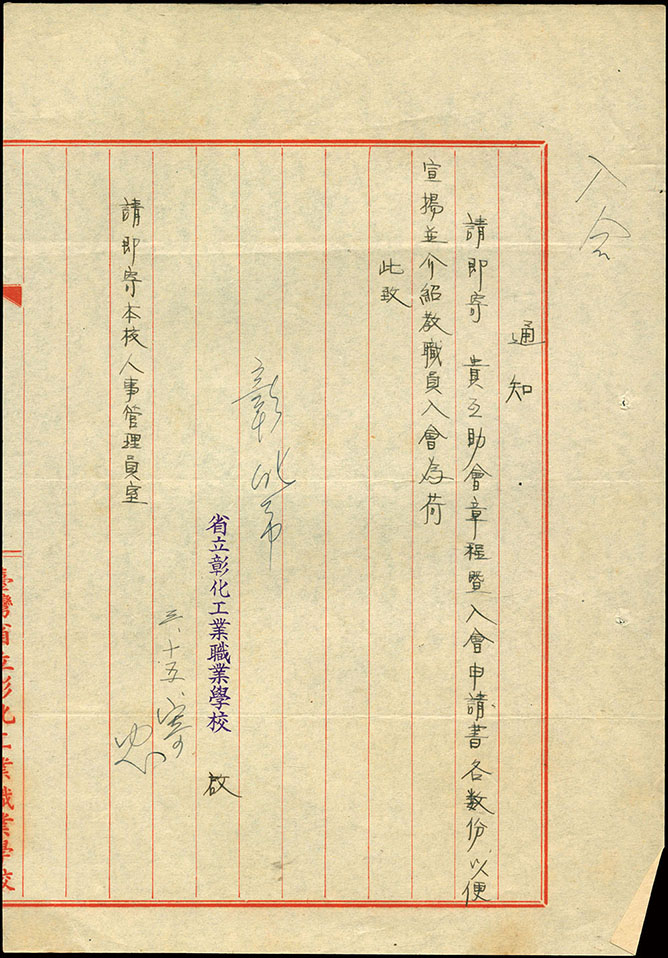 入会
通知
請即寄　貴互助會章程暨入會申請書各數份，以便
宣揚並介紹教職員入會為荷
此致
彰化市
省立彰化工業職業學校　啟
三、十五、寄
請即寄本校人事管理員室
臺灣省立彰化工業職業學校